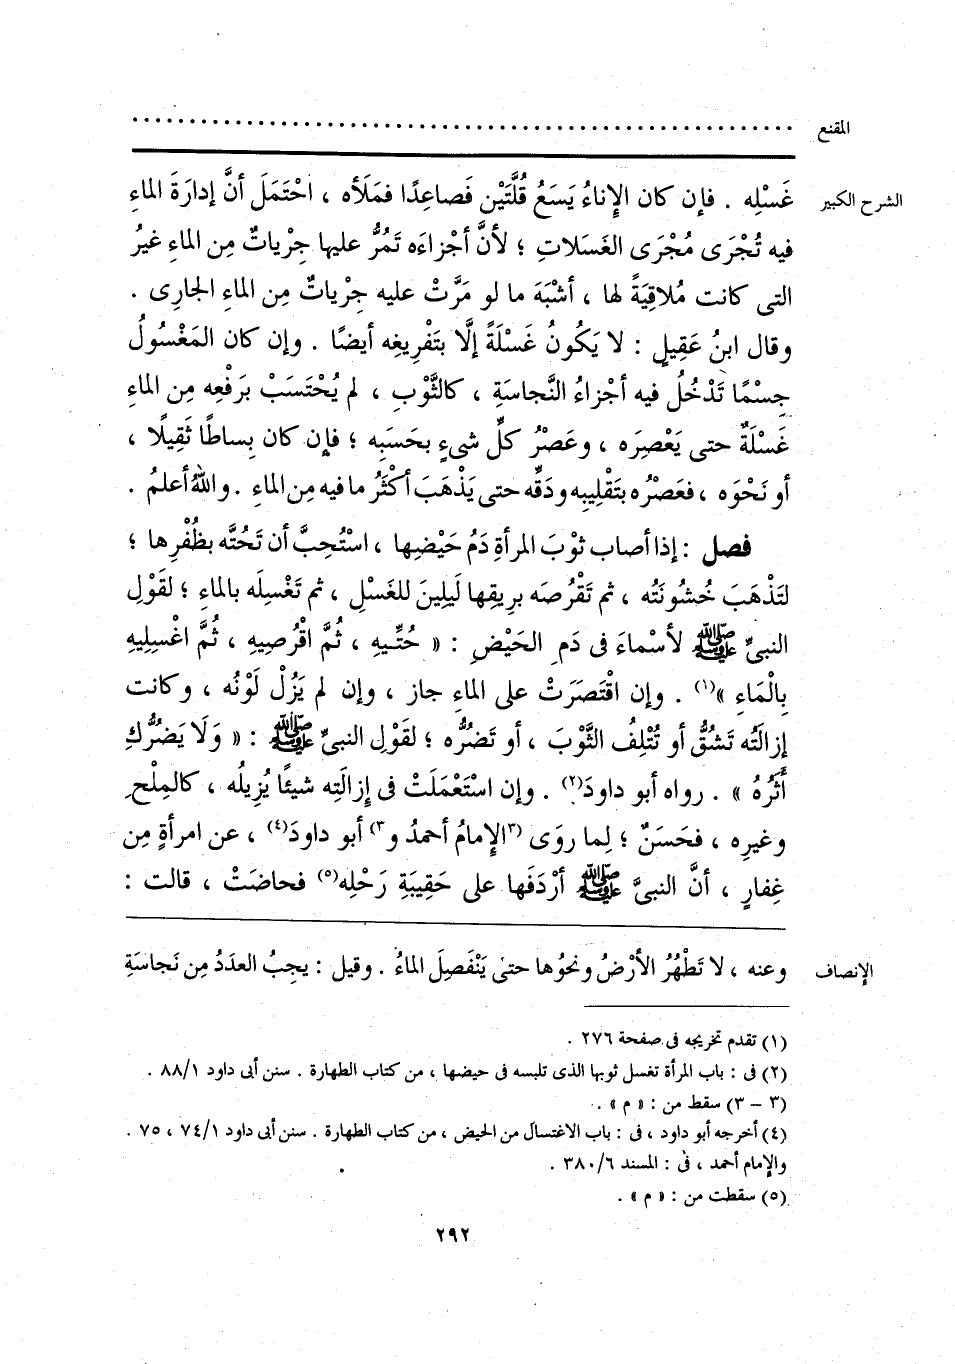 المقنع ............................................................
الشرح الكبير غَسْلِه . فإن كان الإِناءُ يَسَعُ قُلَّتَيْن فَصاعِدًا فمَلَأه ، احْتَمَلَ أنَّ إدارَةَ الماءِ
فيه تُجْرَى مُجْرَى الغَسَلاتِ ؛ لأنَّ أجْزاءَه تَمُرُّ عليها جِرْياتٌ مِن الماءِ غيرُ
التى كانت مُلاقِيَةً لها ، أشْبَهَ ما لو مَرَّتْ عليه جِرْياتٌ مِن الماءِ الجارِى .
وقال ابنُ عَقِيلٍ : لا يَكُونُ غَسْلَةً إلَّا بتَفْرِيغِه أيضًا . وإن كان المَغْسُولُ
جِسْمًا تَدْخُلُ فيه أجْزاءُ النَّجاسَةِ ، كالثَّوْبِ ، لم يُحْتَسَبْ برَفْعِه مِن الماءِ
غَسْلَةً حتى يَعْصِرَه ، وعَصْرُ كلِّ شىءٍ بحَسَبِه ؛ فإن كان بِساطًا ثَقِيلًا ،
أو نَحْوَه ، فعَصْرُه بتَقْلِيبِه ودَقِّه حتى يَذْهَبَ أكْثَرُ ما فيه مِن الماءِ . واللهُ أعلمُ .
فصل : إذا أصاب ثوْبَ المرأةِ دَمُ حَيْضِها ، اسْتُحِبَّ أن تَحُتَّه بظُفْرِها ؛
لتَذْهَبَ خُشُونَتُه ، ثم تَقْرُصَه برِيقِها لَيلِينَ للغَسْلِ ، ثم تَغْسِلَه بالماءِ ؛ لقَوْلِ
النبىِّ ﷺ لأسْماءَ فى دَمِ الحَيْضِ : « حُتِّيهِ ، ثُمَّ اقْرُصِيهِ ، ثُمَّ اغْسِلِيهِ
بِالْمَاءِ »(١) . وإن اقْتَصَرَتْ على الماءِ جاز ، وإن لم يَزُلْ لَوْنُه ، وكانت
إزالَتُه تَشُقُّ أو تُتْلِفُ الثَّوْبَ ، أو تَضُرُّه ؛ لقَوْل النبىِّ ﷺ : « وَلَا يَضُرُّكِ
أَثَرُهُ » . رواه أبو داودَ(٢) . وإن اسْتَعْمَلَتْ فى إزالَتِه شيئًا يُزِيلُه ، كالمِلْحِ
وغيرِه ، فحَسَنٌ ؛ لِما روَى (٣الإِمامُ أحمدُ و٣) أبو داودَ(٤) ، عن امرأةٍ مِن
غِفارٍ ، أنَّ النبىَّ ﷺ أرْدَفَها على حَقِيبَةِ رَحْلِه(٥) فحاضَتْ ، قالت :
الإنصاف وعنه ، لا تَطْهُرُ الأرْضُ ونحوُها حتى يَنْفَصِلَ الماءُ . وقيل : يجِبُ العدَدُ مِن نَجاسَةِ
(١) تقدم تخريجه فى صفحة ٢٧٦ .
(٢) فى : باب المرأة تغسل ثوبها الذى تلبسه فى حيضها ، من كتاب الطهارة . سنن أبى داود ٨٨/١ .
(٣ - ٣) سقط من : « م » .
(٤) أخرجه أبو داود ، فى : باب الاغتسال من الحيض ، من كتاب الطهارة . سنن أبى داود ٧٤/١ ، ٧٥ .
والإمام أحمد ، فى : المسند ٣٨٠/٦ .
(٥) سقطت من : « م » .
٢٩٢